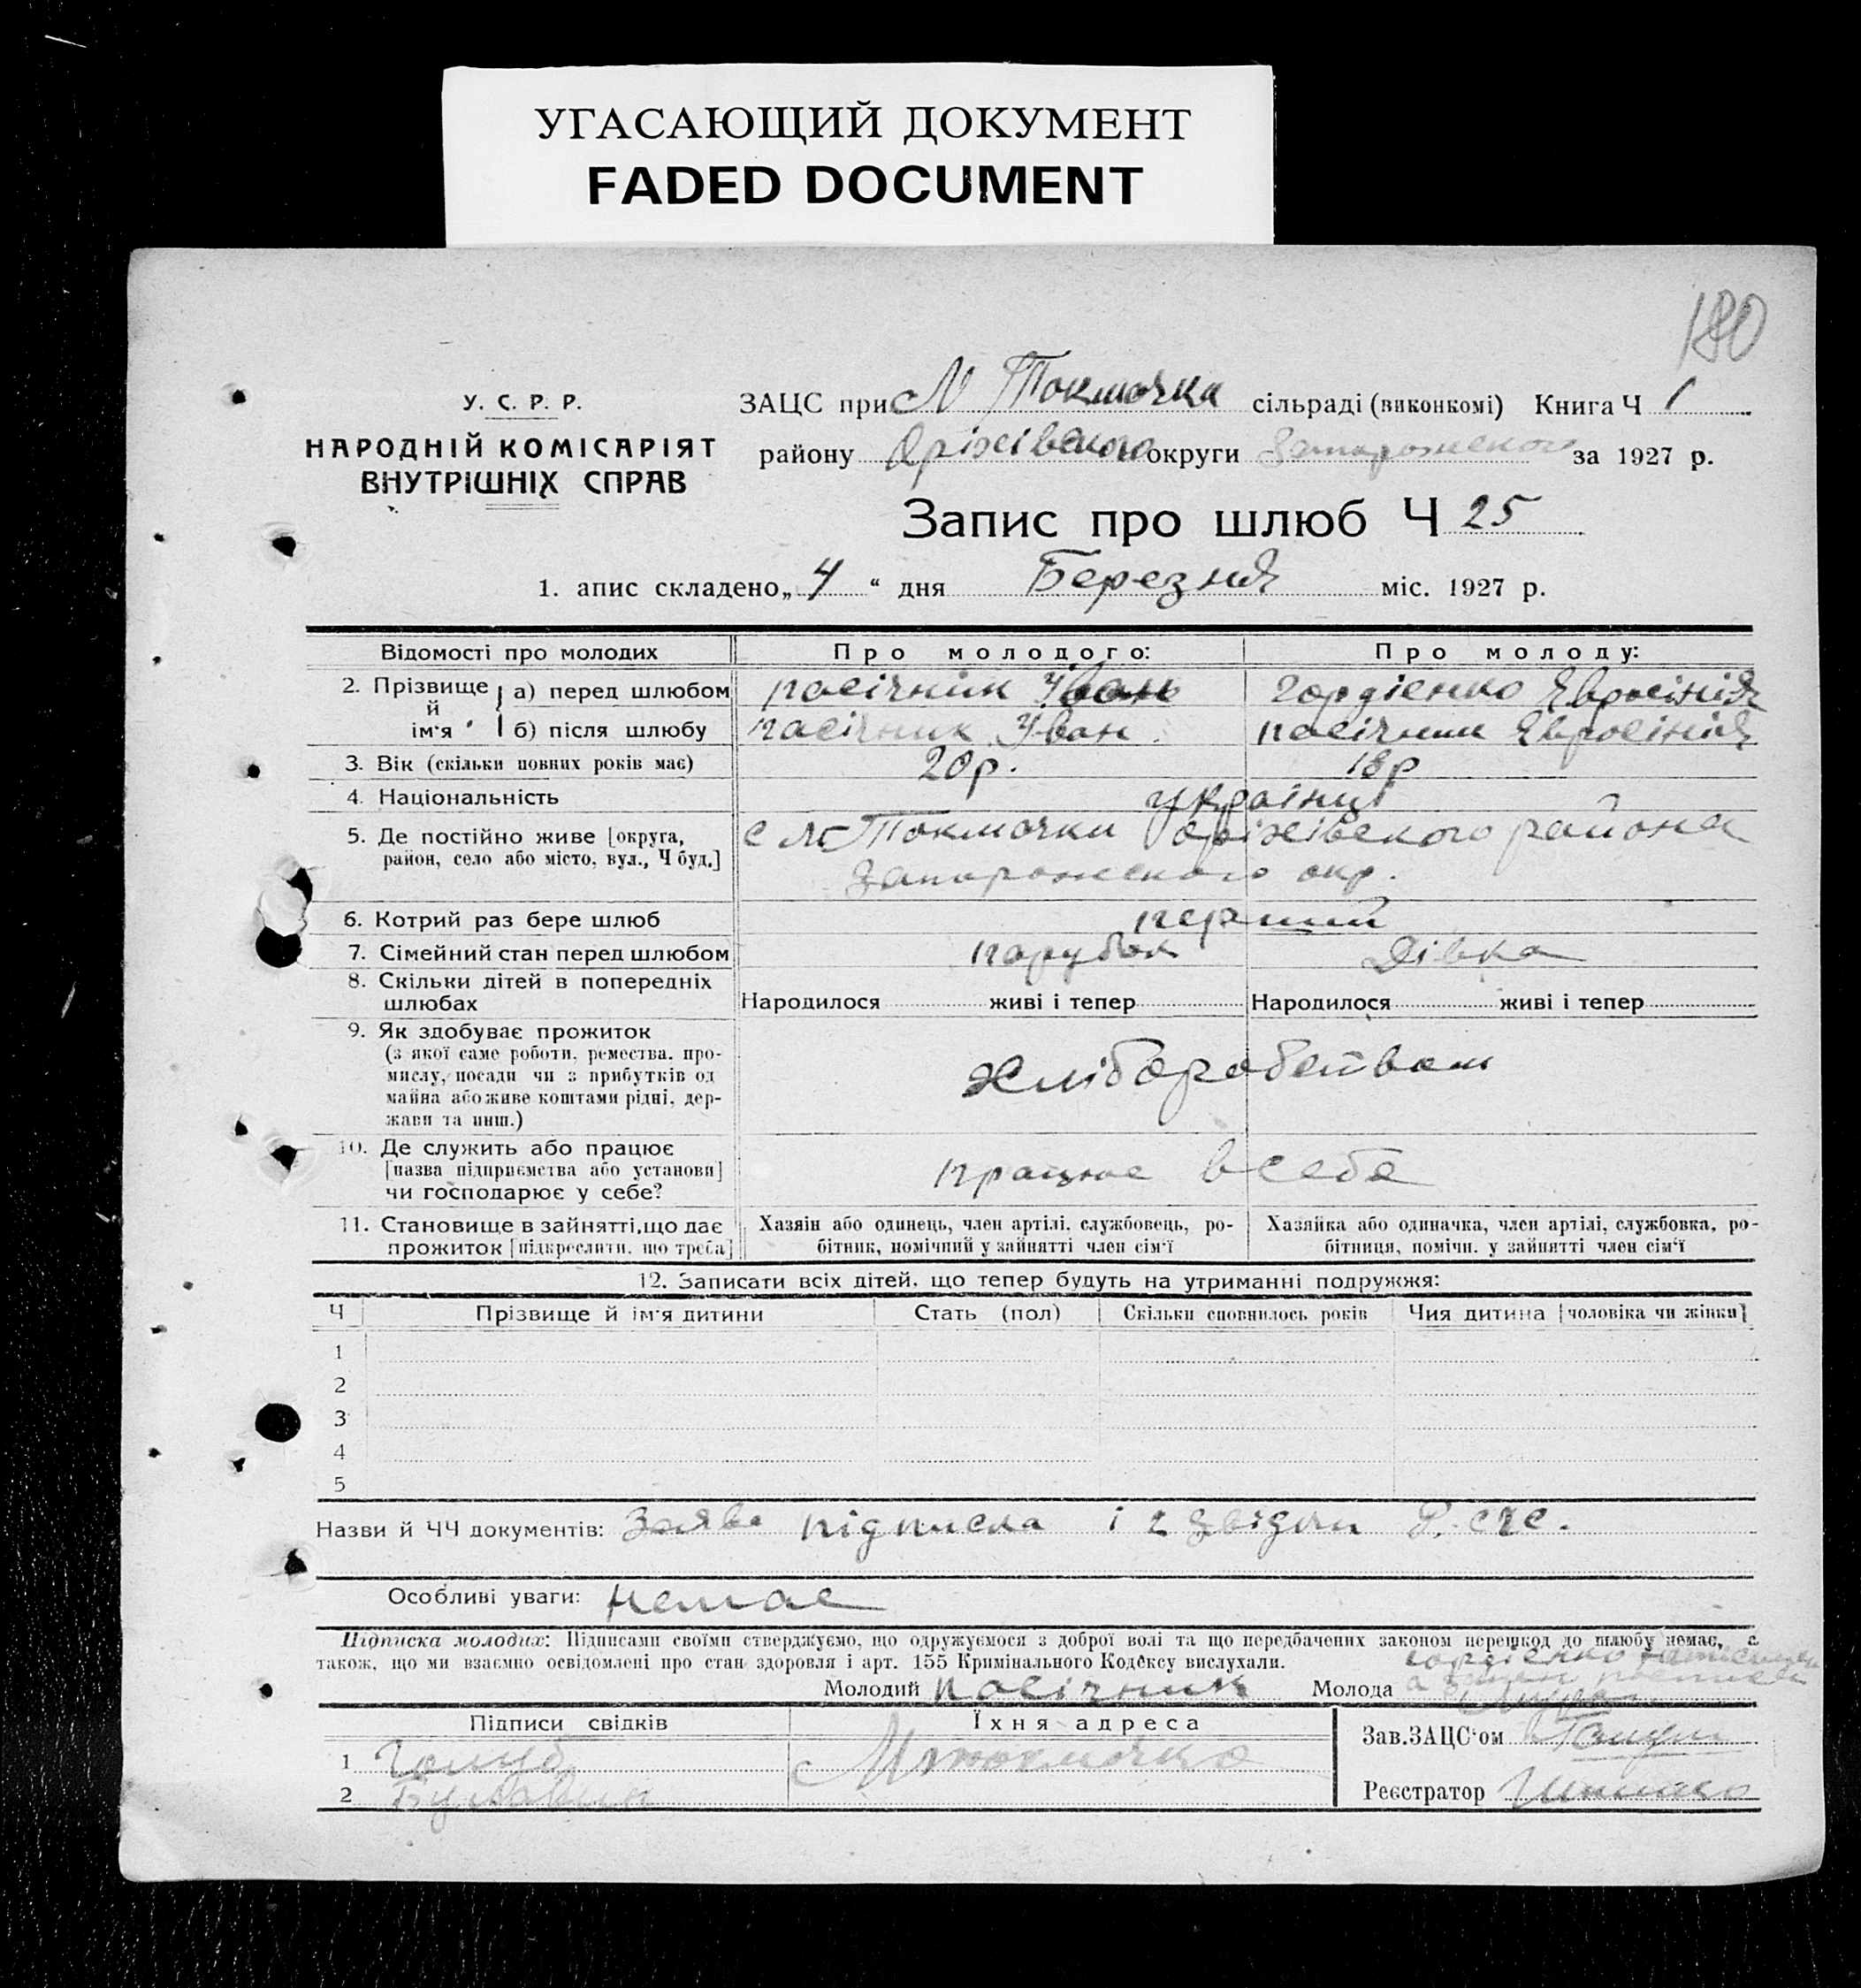 УГАСАЮЩИЙ ДОКУМЕНТ
FADED DOCUMENT
180
У. С. Р. Р.
НАРОДНІЙ КОМІСАРІЯТ
ВНУТРІШНІХ СПРАВ
ЗАЦС при М Токмачка сільраді (виконкомі) Книга Ч 1
району Оріхівського округи Запорожского за 1927 р.
Запис про шлюб Ч 25
1. апис складено „4“ дня Березня міс. 1927 р.
Відомості про молодих
Про молодого:
Про молоду:
2. Прізвище й ім'я
а) перед шлюбом
пасічник Іван
Гордієнко Євросінія
б) після шлюбу
пасічник Іван
пасічник Євросінія
3. Вік (скільки повних років має)
20р.
18р
4. Національність
українці
5. Де постійно живе [округа,
район, село або місто, вул., Ч буд.]
с М Токмачки оріхівского района
Запорожского окр.
6. Котрий раз бере шлюб
перший
7. Сімейний стан перед шлюбом
парубок
Дівка
8. Скільки дітей в попередніх
шлюбах
Народилося живі і тепер
Народилося живі і тепер
9. Як здобуває прожиток
(з якої саме роботи, ремества, про-
мислу, посади чи з прибутків од
майна або живе коштами рідні, дер-
жави та инш.)
хліборобством
10. Де служить або працює
[назва підприємства або установи]
чи господарює у себе?
працює в себе
11. Становище в зайнятті, що дає
прожиток [підкреслити, що треба]
Хазяїн або одинець, член артілі, службовець, ро-
бітник, помічний у зайнятті член сім'ї
Хазяйка або одиначка, член артілі, службовка, ро-
бітниця, помічн. у зайнятті член сім'ї
12. Записати всіх дітей, що тепер будуть на утриманні подружжя:
Ч
Прізвище й ім'я дитини
Стать (пол)
Скільки сповнилось років
Чия дитина [чоловіка чи жінки]
1
2
3
4
5
Назви й ЧЧ документів: Заява підписка і 2 звідки
Особливі уваги: немає
Підписка молодих: Підписами своїми стверджуємо, що одружуємося з доброї волі та що передбачених законом перешкод до шлюбу немає, а
також, що ми взаємно освідомлені про стан здоровля і арт. 155 Кримінального Кодексу вислухали.
Гордієнко
Молодий пасічник Молода
Підписи свідків
Їхня адреса
Зав.ЗАЦС'ом
1 Голуб
М токмачка
2
Реєстратор